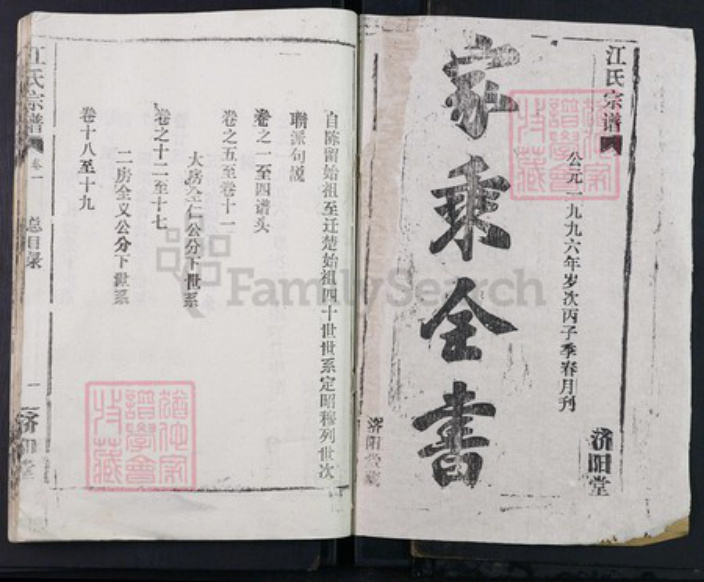 江氏宗谱
公元一九九六年岁次丙子季春月刊
济阳堂
家乘全书
济阳堂
自陈留始祖至迁楚始祖四十世世系定昭穆列世次
聯派句説
卷之一至四谱头
卷之五至卷十一
大房全仁公分下世系
卷之十二至十七
二房全义公分下世系
卷十八至十九
江氏宗谱
卷一
总目录
一
济阳堂
FamilySearch